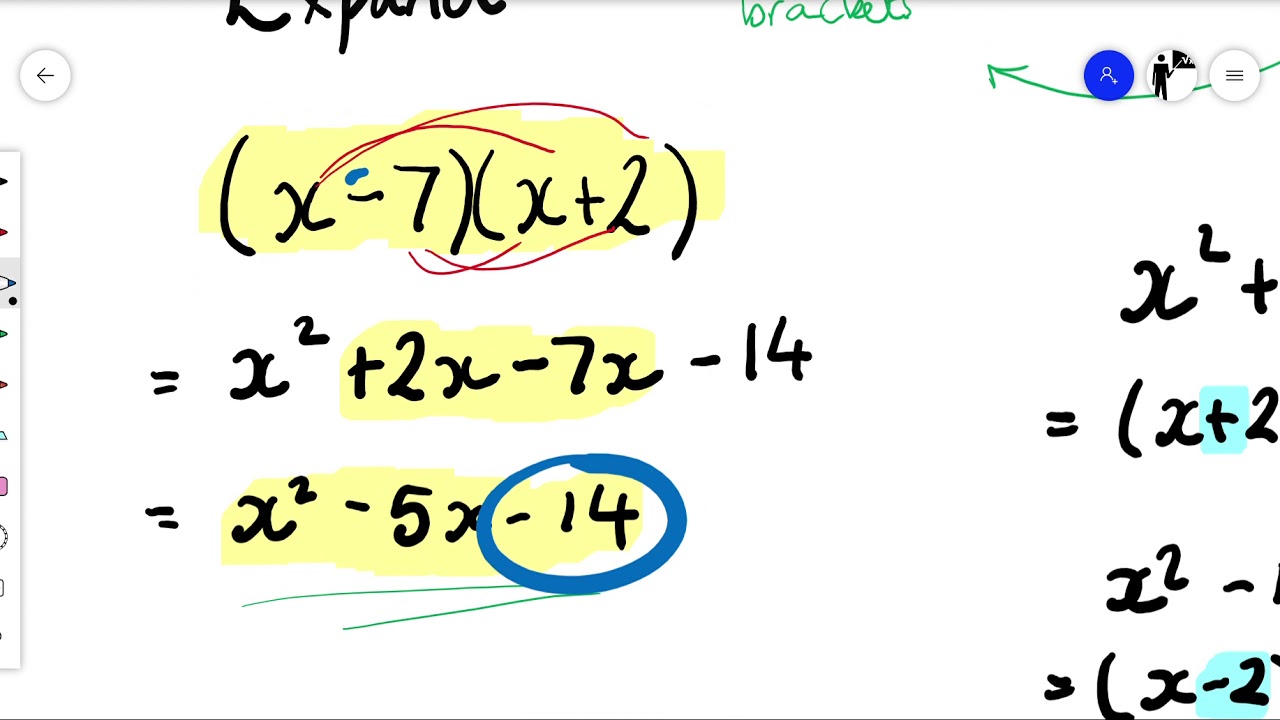 Expand
brackets
(x-7)(x+2)
= x² +2x-7x -14
= x² -5x -14
x² +
= (x+2
x² -
= (x-2)